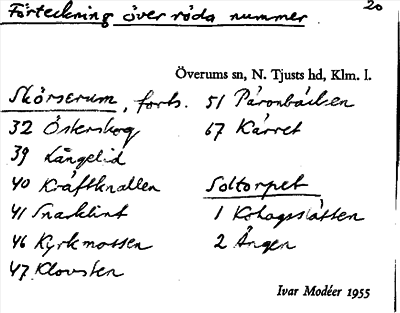 Förteckning över röda nummer
20
Överums sn, N. Tjusts hd, Klm. l.
Skörserum, forts.
32 Österskog
39 Längelid
40 Kräftknallen
41 Snarklint
46 Kyrkmossen
47 Klovsten
51 Päronbacken
67 Kärret
Soltorpet
1 Kohagsslätten
2 Ängen
Ivar Modéer 1955